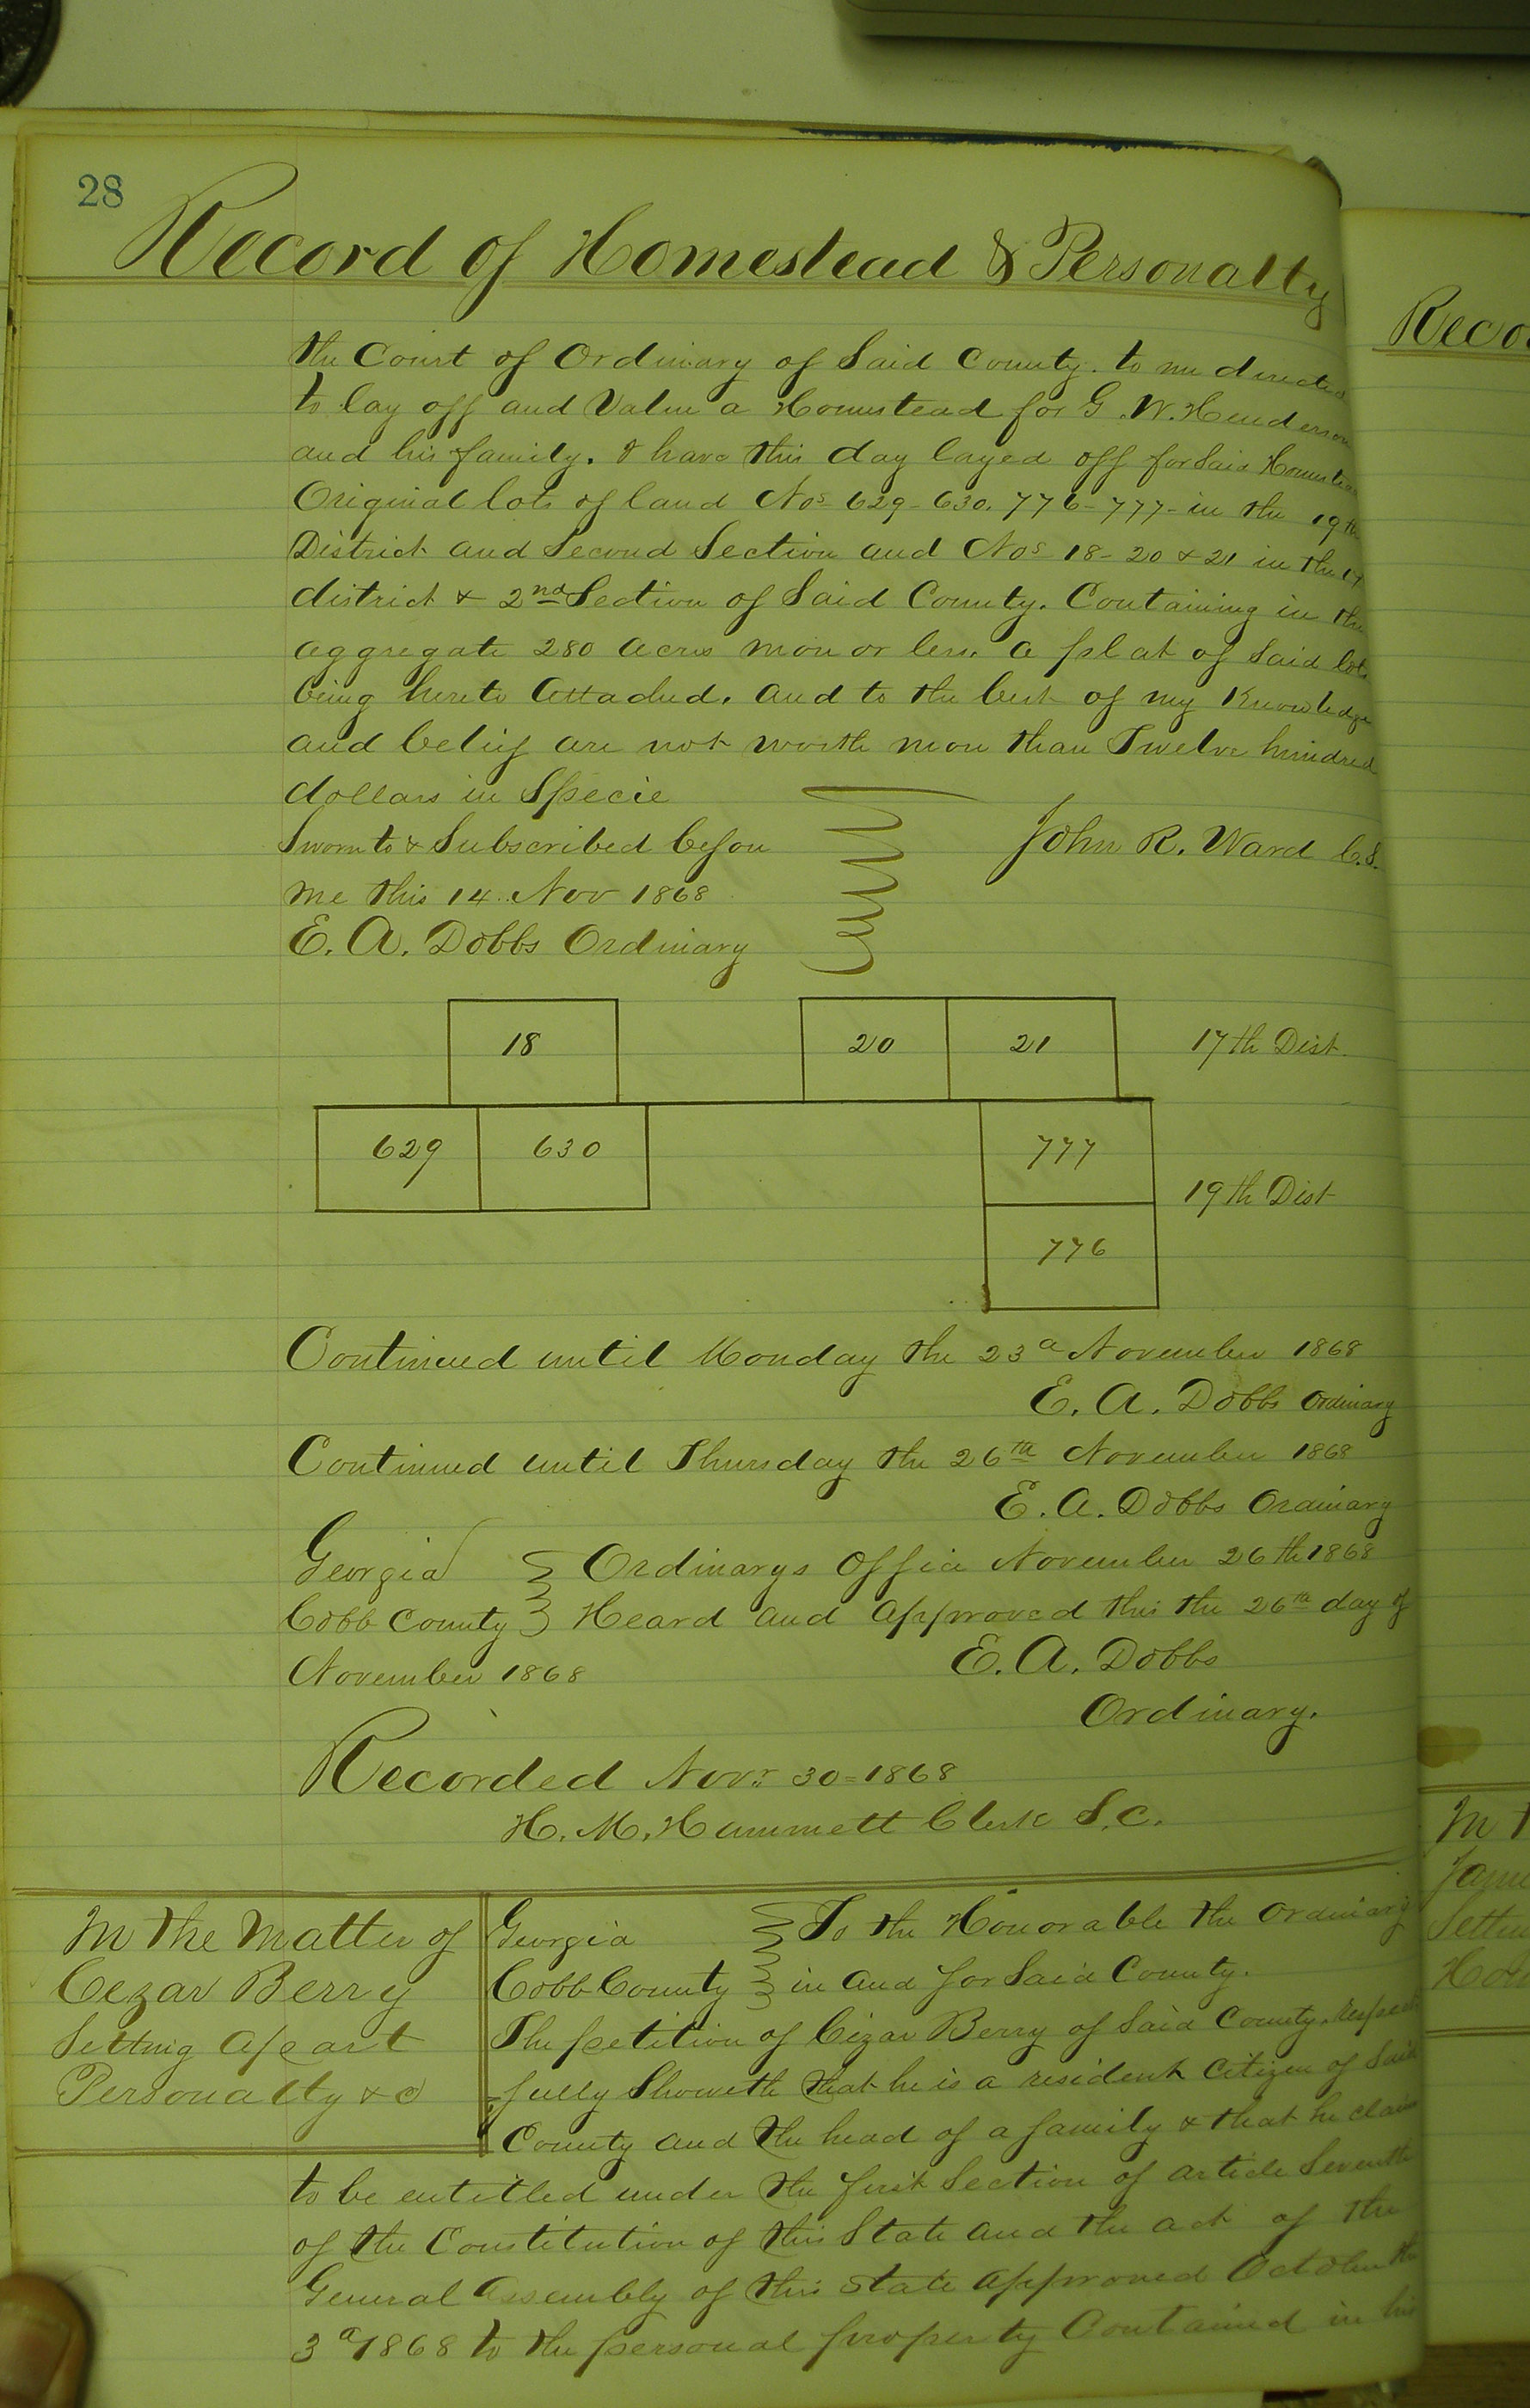 28
Record of Homestead & Personalty
the Court of Ordinary of Said County. to me directed
to lay off and Value a Homestead for G. W. Henderson
and his family. I have this day layed off for Said Homestead
Original lots of land Nos 629- 630. 776- 777- in the 19th
District and Second Section and Nos 18- 20 & 21 in the 17
district & 2nd Section of Said County. Containing in the
aggregate 280 acres more or less. a plat of Said lots
being hereto attached. and to the best of my Knowledge
and belief are not worth more than Twelve hundred
dollars in Specie
Sworn to & Subscribed before
me this 14.. Nov 1868
E. A. Dobbs Ordinary
John R. Ward C.S.
18
20
21
17th Dist.
629
630
777
19th Dist
776
Continued until Monday the 23d November 1868
E. A. Dobbs Ordinary
Continued until Thursday the 26th November 1868
E. A. Dobbs Ordinary
Georgia Ordinarys Office November 26th 1868
Cobb County Heard and approved this the 26th day of
November 1868 E. A. Dobbs
Ordinary.
Recorded Novr 30=1868
H. M. Hammett Clerk S.C.
In the Matter of
Cezar Berry
Setting apart
Personalty &c
Georgia To the Honorable the Ordinary
Cobb County in and for Said County.
The petition of Cezar Berry of Said County. respect
fully Showeth that he is a resident Citizen of Said
County and the head of a family & that he claims
to be entitled under the first Section of article Seventh
of the Constitution of this State and the act of the
General Assembly of this State approved October the
3d 1868 to the personal property Contained in his
Reco
In t
Jame
Settin
Hom